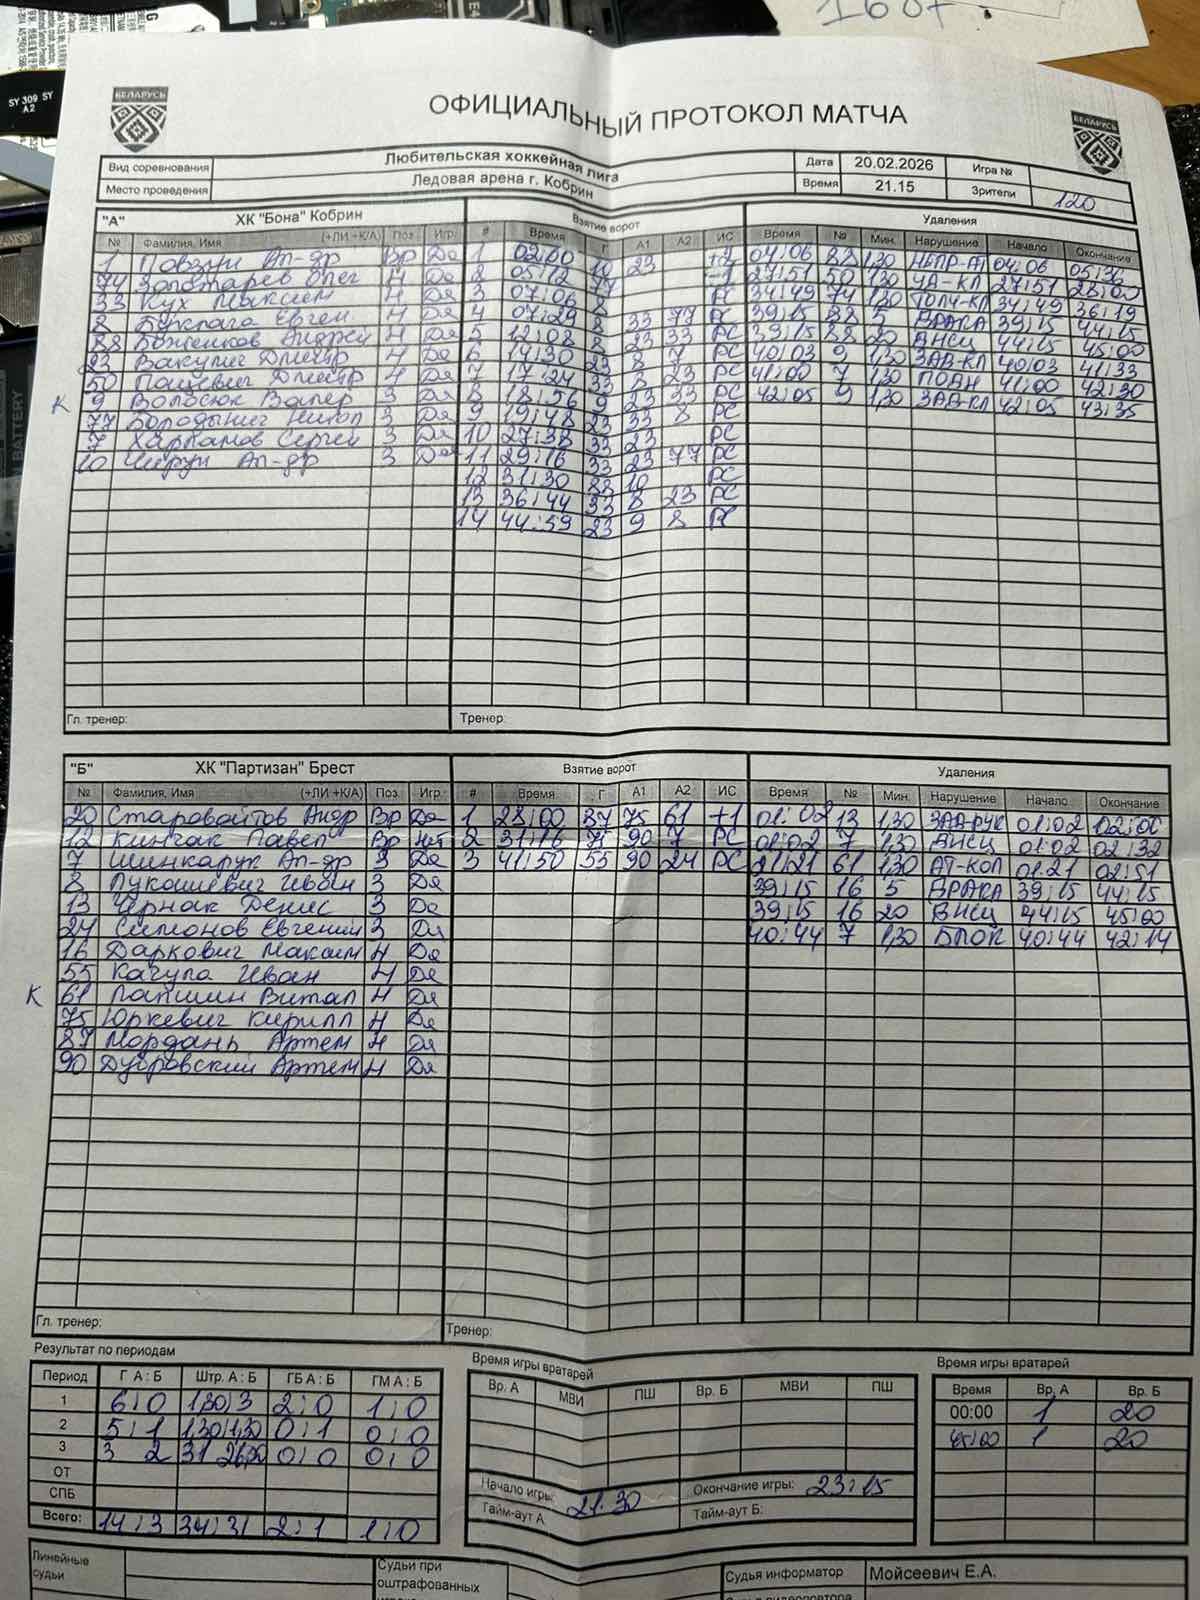 160т
SY 309 SY
A2
БЕЛАРУСЬ
ОФИЦИАЛЬНЫЙ ПРОТОКОЛ МАТЧА
БЕЛАРУСЬ
Вид соревнования Любительская хоккейная лига Дата 20.02.2026 Игра №
Место проведения Ледовая арена г. Кобрин Время 21.15 Зрители 120
"А" ХК "Бона" Кобрин Взятие ворот Удаления
№ Фамилия, Имя (+ЛИ +К/А) Поз Игр. # Время Г А1 А2 ИС Время № Мин. Нарушение Начало Окончание
1 Повзун Ал-др Вр Да 1 02:00 10 23 +1 04:06 88 1,30 04:06 05:36
74 Золотарев Олег Н Да 2 05:12 77 -1 27:51 50 1,30 УД-КЛ 27:51 28:00
33 Кух Максим Н Да 3 07:06 8 РС 34:49 74 1,30 ТОЛЧ-КЛ 34:49 36:19
8 Евген. Н Да 4 07:29 8 33 77 РС 39:15 88 5 ДРАКА 39:15 44:15
88 Боженков Андрей Н Да 5 12:08 8 23 33 РС 39:15 88 20 ДИСЦ 44:15 45:00
23 Вакулич Дмитр Н Да 6 14:30 23 8 7 РС 40:03 9 1,30 ЗАД-КЛ 40:03 41:33
50 Пацевич Дмитр Н Да 7 17:24 33 8 23 РС 41:00 7 1,30 ПОДН 41:00 42:30
К 9 Волосюк Валер З Да 8 18:56 9 23 33 РС 42:05 9 1,30 ЗАД-КЛ 42:05 43:35
77 Болодынич Никол З Да 9 19:48 23 33 8 РС
7 Харламов Сергей З Да 10 27:38 33 23 РС
10 Ширун Ал-др З Да 11 29:16 33 23 77 РС
12 31:30 88 10 РС
13 36:44 33 8 23 РС
14 44:59 23 9 8 РС
Гл. тренер: Тренер:
"Б" ХК "Партизан" Брест Взятие ворот Удаления
№ Фамилия, Имя (+ЛИ +К/А) Поз Игр. # Время Г А1 А2 ИС Время № Мин. Нарушение Начало Окончание
20 Старовойтов Андр Вр Да 1 28:00 87 75 61 +1 01:02 13 1,30 ЗАД-РУК 01:02 02:00
12 Кинчак Павел Вр Нет 2 31:16 90 7 РС 01:02 7 1,30 ДИСЦ 01:02 02:32
7 Шинкарук Ал-др З Да 3 41:50 55 90 24 РС 21:21 61 1,30 АТ-КОЛ 01:21 02:51
8 Лукашевич Иван З Да 39:15 16 5 ДРАКА 39:15 44:15
13 Чернак Денис З Да 39:15 16 20 ДИСЦ 44:15 45:00
24 Симонов Евгений З Да 40:44 7 1,30 БЛОК 40:44 42:14
16 Даркович Максим Н Да
55 Качула Иван Н Да
К 61 Лапшин Витал Н Да
75 Юркевич Кирилл Н Да
87 Мордань Артем Н Да
90 Дубровский Артем Н Да
Гл. тренер: Тренер:
Результат по периодам Время игры вратарей Время игры вратарей
Период Г А : Б Штр. А : Б ГБ А : Б ГМ А : Б Вр. А МВИ ПШ Вр. Б МВИ ПШ Время Вр. А Вр. Б
1 6:0 1,30:3 2:0 1:0 00:00 1 20
2 5:1 1,30:1,30 0:1 0:0 45:00 1 20
3 3 2 31 26,30 0:0 0:0
ОТ
СПБ
Всего: 14:3 34:31 2:1 1:0
Начало игры: 21.30 Окончание игры: 23:15
Тайм-аут А Тайм-аут Б:
Линейные судьи Судьи при оштрафованных Судья информатор Мойсеевич Е.А.